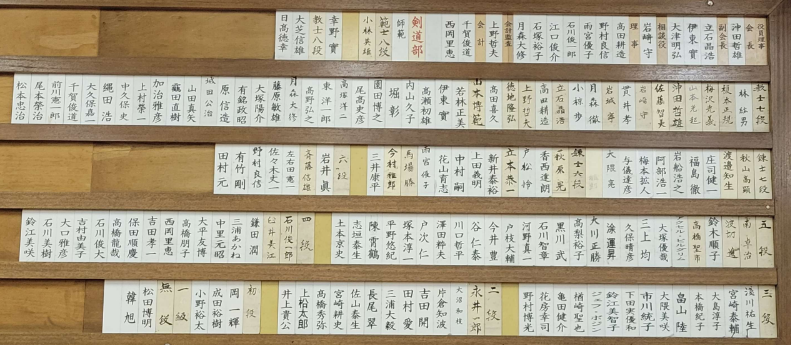 役員理事
会長
沖田哲雄
副会長
立石晶浩
伊東實
大津明弘
相談役
岩崎守
理事
高田耕造
野村良信
雨宮優子
石川俊一郎
江口俊介
石塚裕子
月森大修
会計監査
上野哲夫
会計
千賀俊道
西岡里恵
剣道部
師範
範士八段
小林英雄
教士八段
幸野實
大芝信雄
日高徳幸
教士七段
林壮男
沖田哲雄
高田耕造
立石晶浩
上野哲夫
高田喜久
若林正美
伊東實
高瀬初雄
内山久子
堀彰
園田博之
尾高史彦
東洋一郎
高野弘之
月森大修
藤原敏雄
大塚陽介
有銘政昭
原信造
山田真矢
龜田直樹
加治雅彦
上村榮一
中久保史
縄田浩
大久保嘉一
千賀俊道
前川憲一郎
尾本榮治
松本忠治
錬士七段
渡邉知生
庄司靖
福島徹
岩船浩之
阿部浩一
梅本拡人
与儀達彦
大隈亮
錬士六段
香西達朗
戸松怜
新井泰裕
上田義明
中村嗣
花山育志
雨宮優子
馬場勝
今村雅郎
三井康平
六段
岩井眞
斉藤信雄
左右田憲一
佐々木丈一
野村良信
有竹剛
田村元
五段
鈴木順子
大塚優哉
二上均
久保晴彦
涂運昇
大川正勝
高梨裕子
黒川武
石川智章
河野真一
戸枝大輔
今井豊
谷仁泰
川口哲平
澤田粋夫
戸次仁
塚本淳一
平野悠紀
陳霄鶴
志垣泰生
土本京史
四段
石川俊一郎
臼井長江
鎌田潤
三浦あかね
中里元昭
大平友博
高橋朋子
西岡里恵
吉田孝一
保田順慶
高橋龍哉
石川俊大
吉村由美子
大口雅彦
石川美樹
鈴江美咲
三段
淺川祐生
宮崎泰輔
大島淳子
本橋紀子
畠山陸
大隈美咲
市川統子
下田実優和
鈴江美智子
ジェフ・ボジン
楢崎聖也
亀田健介
花房幸司
野村博光
二段
永井一郎
大沼和枝
片倉知波
吉田開
田村愛
三浦大毅
長尾翠
佐山泰生
宮崎耕史
高橋秀弥
上松太郎
井上貴公
初段
岡一輝
成田裕樹
小野裕太
一級
無段
松田博明
韓旭